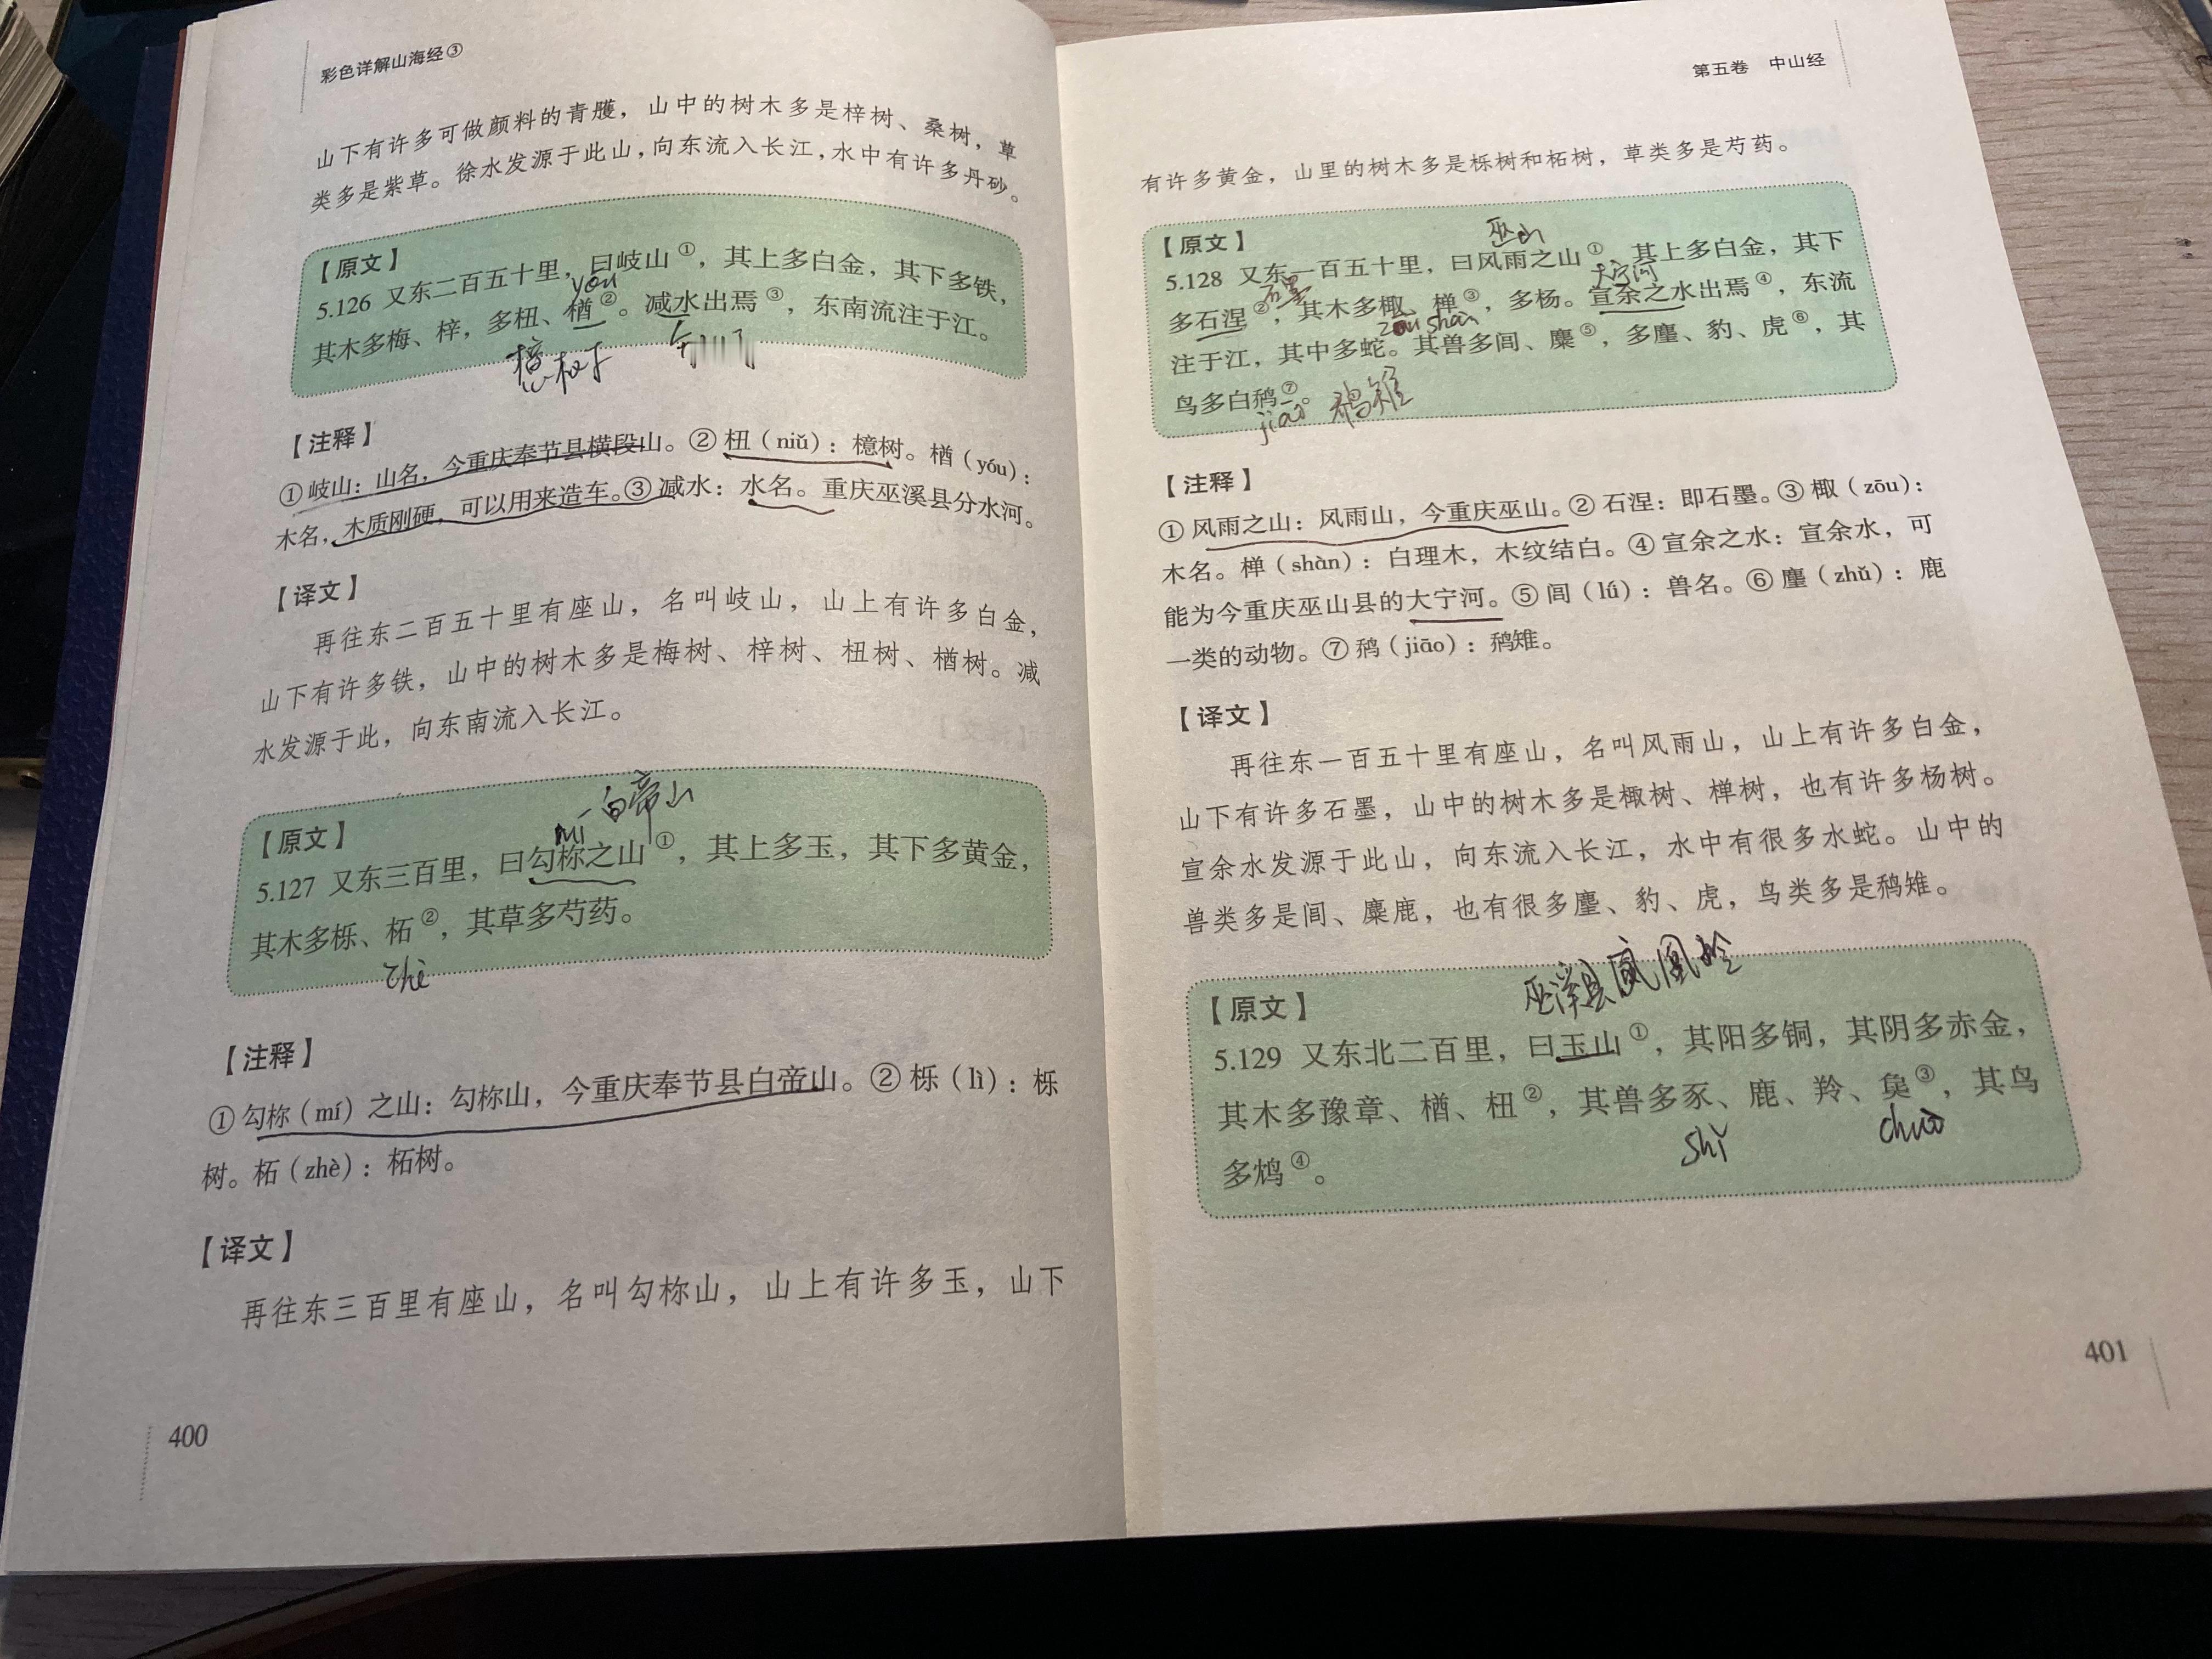 彩色详解山海经③
山下有许多可做颜料的青雘，山中的树木多是梓树、桑树，草
类多是紫草。徐水发源于此山，向东流入长江，水中有许多丹砂。
【原文】
5.126 又东二百五十里，曰岐山①，其上多白金，其下多铁，
yóu
其木多梅、梓，多杻、楢②。减水出焉③，东南流注于江。
檍树
【注释】
①岐山：山名，今重庆奉节县横段山。②杻（niǔ）：檍树。楢（yóu）：
木名，木质刚硬，可以用来造车。③减水：水名。重庆巫溪县分水河。
【译文】
再往东二百五十里有座山，名叫岐山，山上有许多白金，
山下有许多铁，山中的树木多是梅树、梓树、杻树、楢树。减
水发源于此，向东南流入长江。
白帝山
【原文】
mí
5.127 又东三百里，曰勾檷之山①，其上多玉，其下多黄金，
其木多栎、柘②，其草多芍药。
zhè
【注释】
①勾檷（mí）之山：勾檷山，今重庆奉节县白帝山。②栎（lì）：栎
树。柘（zhè）：柘树。
【译文】
再往东三百里有座山，名叫勾檷山，山上有许多玉，山下
400
第五卷 中山经
有许多黄金，山里的树木多是栎树和柘树，草类多是芍药。
巫山
【原文】
5.128 又东一百五十里，曰风雨之山①，其上多白金，其下
石墨 大宁河
多石涅②，其木多棷、椫③，多杨。宣余之水出焉④，东流
zōu shàn
注于江，其中多蛇。其兽多闾、麋⑤，多麈、豹、虎⑥，其
鸟多白鷮⑦。
jiāo 鷮雉
【注释】
①风雨之山：风雨山，今重庆巫山。②石涅：即石墨。③棷（zōu）：
木名。椫（shàn）：白理木，木纹结白。④宣余之水：宣余水，可
能为今重庆巫山县的大宁河。⑤闾（lǘ）：兽名。⑥麈（zhǔ）：鹿
一类的动物。⑦鷮（jiāo）：鷮雉。
【译文】
再往东一百五十里有座山，名叫风雨山，山上有许多白金，
山下有许多石墨，山中的树木多是棷树、椫树，也有许多杨树。
宣余水发源于此山，向东流入长江，水中有很多水蛇。山中的
兽类多是闾、麋鹿，也有很多麈、豹、虎，鸟类多是鷮雉。
巫溪县凤凰岭
【原文】
5.129 又东北二百里，曰玉山①，其阳多铜，其阴多赤金，
其木多豫章、楢、杻②，其兽多豕、鹿、羚、㚟③，其鸟
shǐ chuò
多鸩④。
401